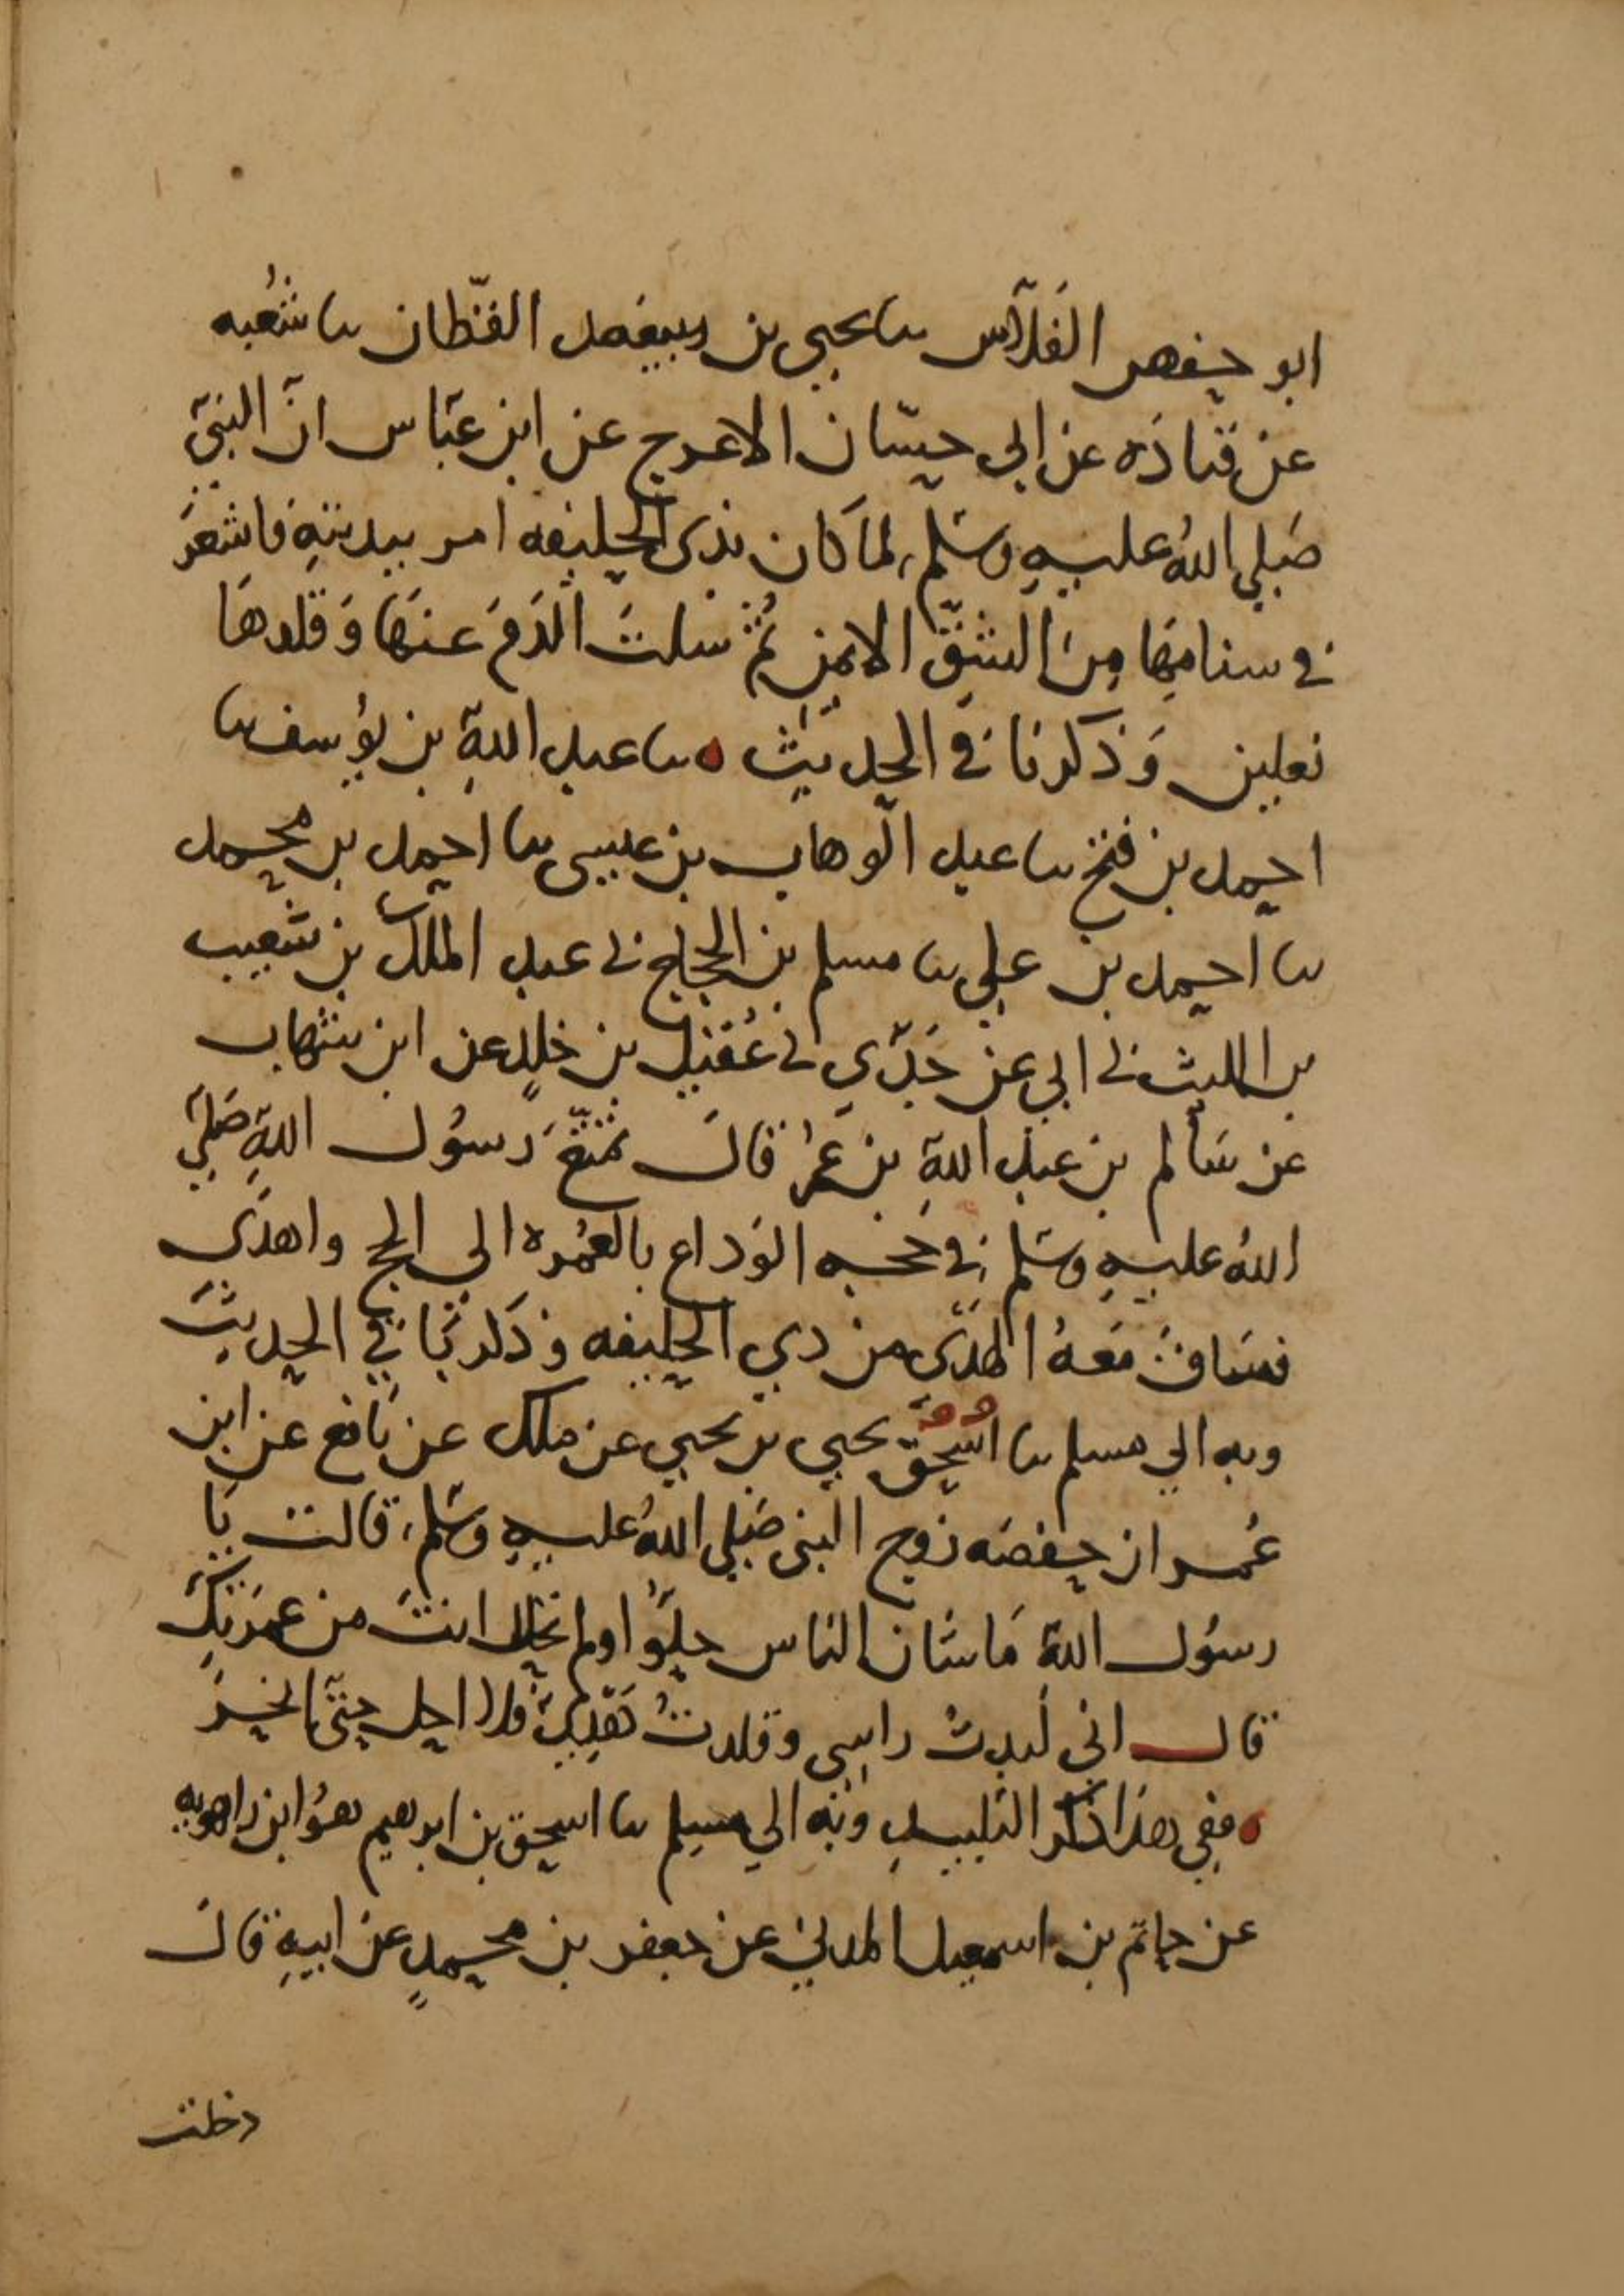 ابو حفص الفلّاس ثنا يحيى بن سعيد القطان ثنا شعبه
عن قتادَه عن ابي حسّان الاعرج عن ابن عبّاس انّ النبيّ
صَلي اللهُ عليهِ وسَلم لما كان بذى الحليفه امر ببدنتهِ فاشعَرَ
في سنامِهَا مِنَ الشِقّ الايمن ثُمّ سَلتَ الدَمَ عنهَا وَقلدهَا
نعلين وَذكرنا في الحديث ه ثنا عبد اللهِ بن يوُسف ثنا
احمد بن فتح ثنا عبد الوهاب بن عيسى ثنا احمد بن محمد
ثنا احمد بن علي ثنا مسلم بن الحجاج ني عبد الملك بن شعيب
بن الليث ني ابي عن جَدّي ني عُقيل بن خلدٍ عن ابن شهاب
عن سَالم بن عبد اللهِ بن عُمرَ قالَ تمتّعَ رَسوُل اللهِ صَليَ
اللهُ عليهِ وسَلم في حَجه الوَداع بالعُمره الي الحج واهدَى
فسَاقَ مَعهُ الهَدىَ من ذي الحليفه وذكر بَاقي الحديثَ
وبه الي مسلم ثنا اسُحق يحيي بن يحيي عن ملك عن نَافع عن ابن
عُمر ان حفصَه زوج النبى صَلي اللهُ عليهِ وسَلم قالت يَا
رسوُل اللهِ مَا شان الناس حلوُا ولم تحلل انتَ من عمرَتِكَ
قال انى لَبدتُ راسِي وقلدتُ هَدْيِيْ فلا احِل حتّى انحرَ
ه ففِى هذا ذكر التلبيدِ وبه الي مسلم ثنا اسحق بن ابرهيم هوُ ابن راهويهِ
عن حاتم بن اسمعيل المدني عن جعفر بن محمدٍ عن ابيهِ قالَ
دخلت